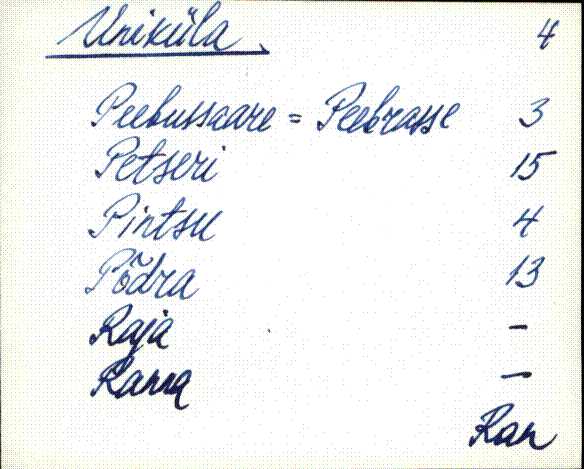 Uniküla 4
Peebussaare = Peebrasse 3
Petseri 15
Pintsu 4
Põdra 13
Raja -
Ranna -
Ran